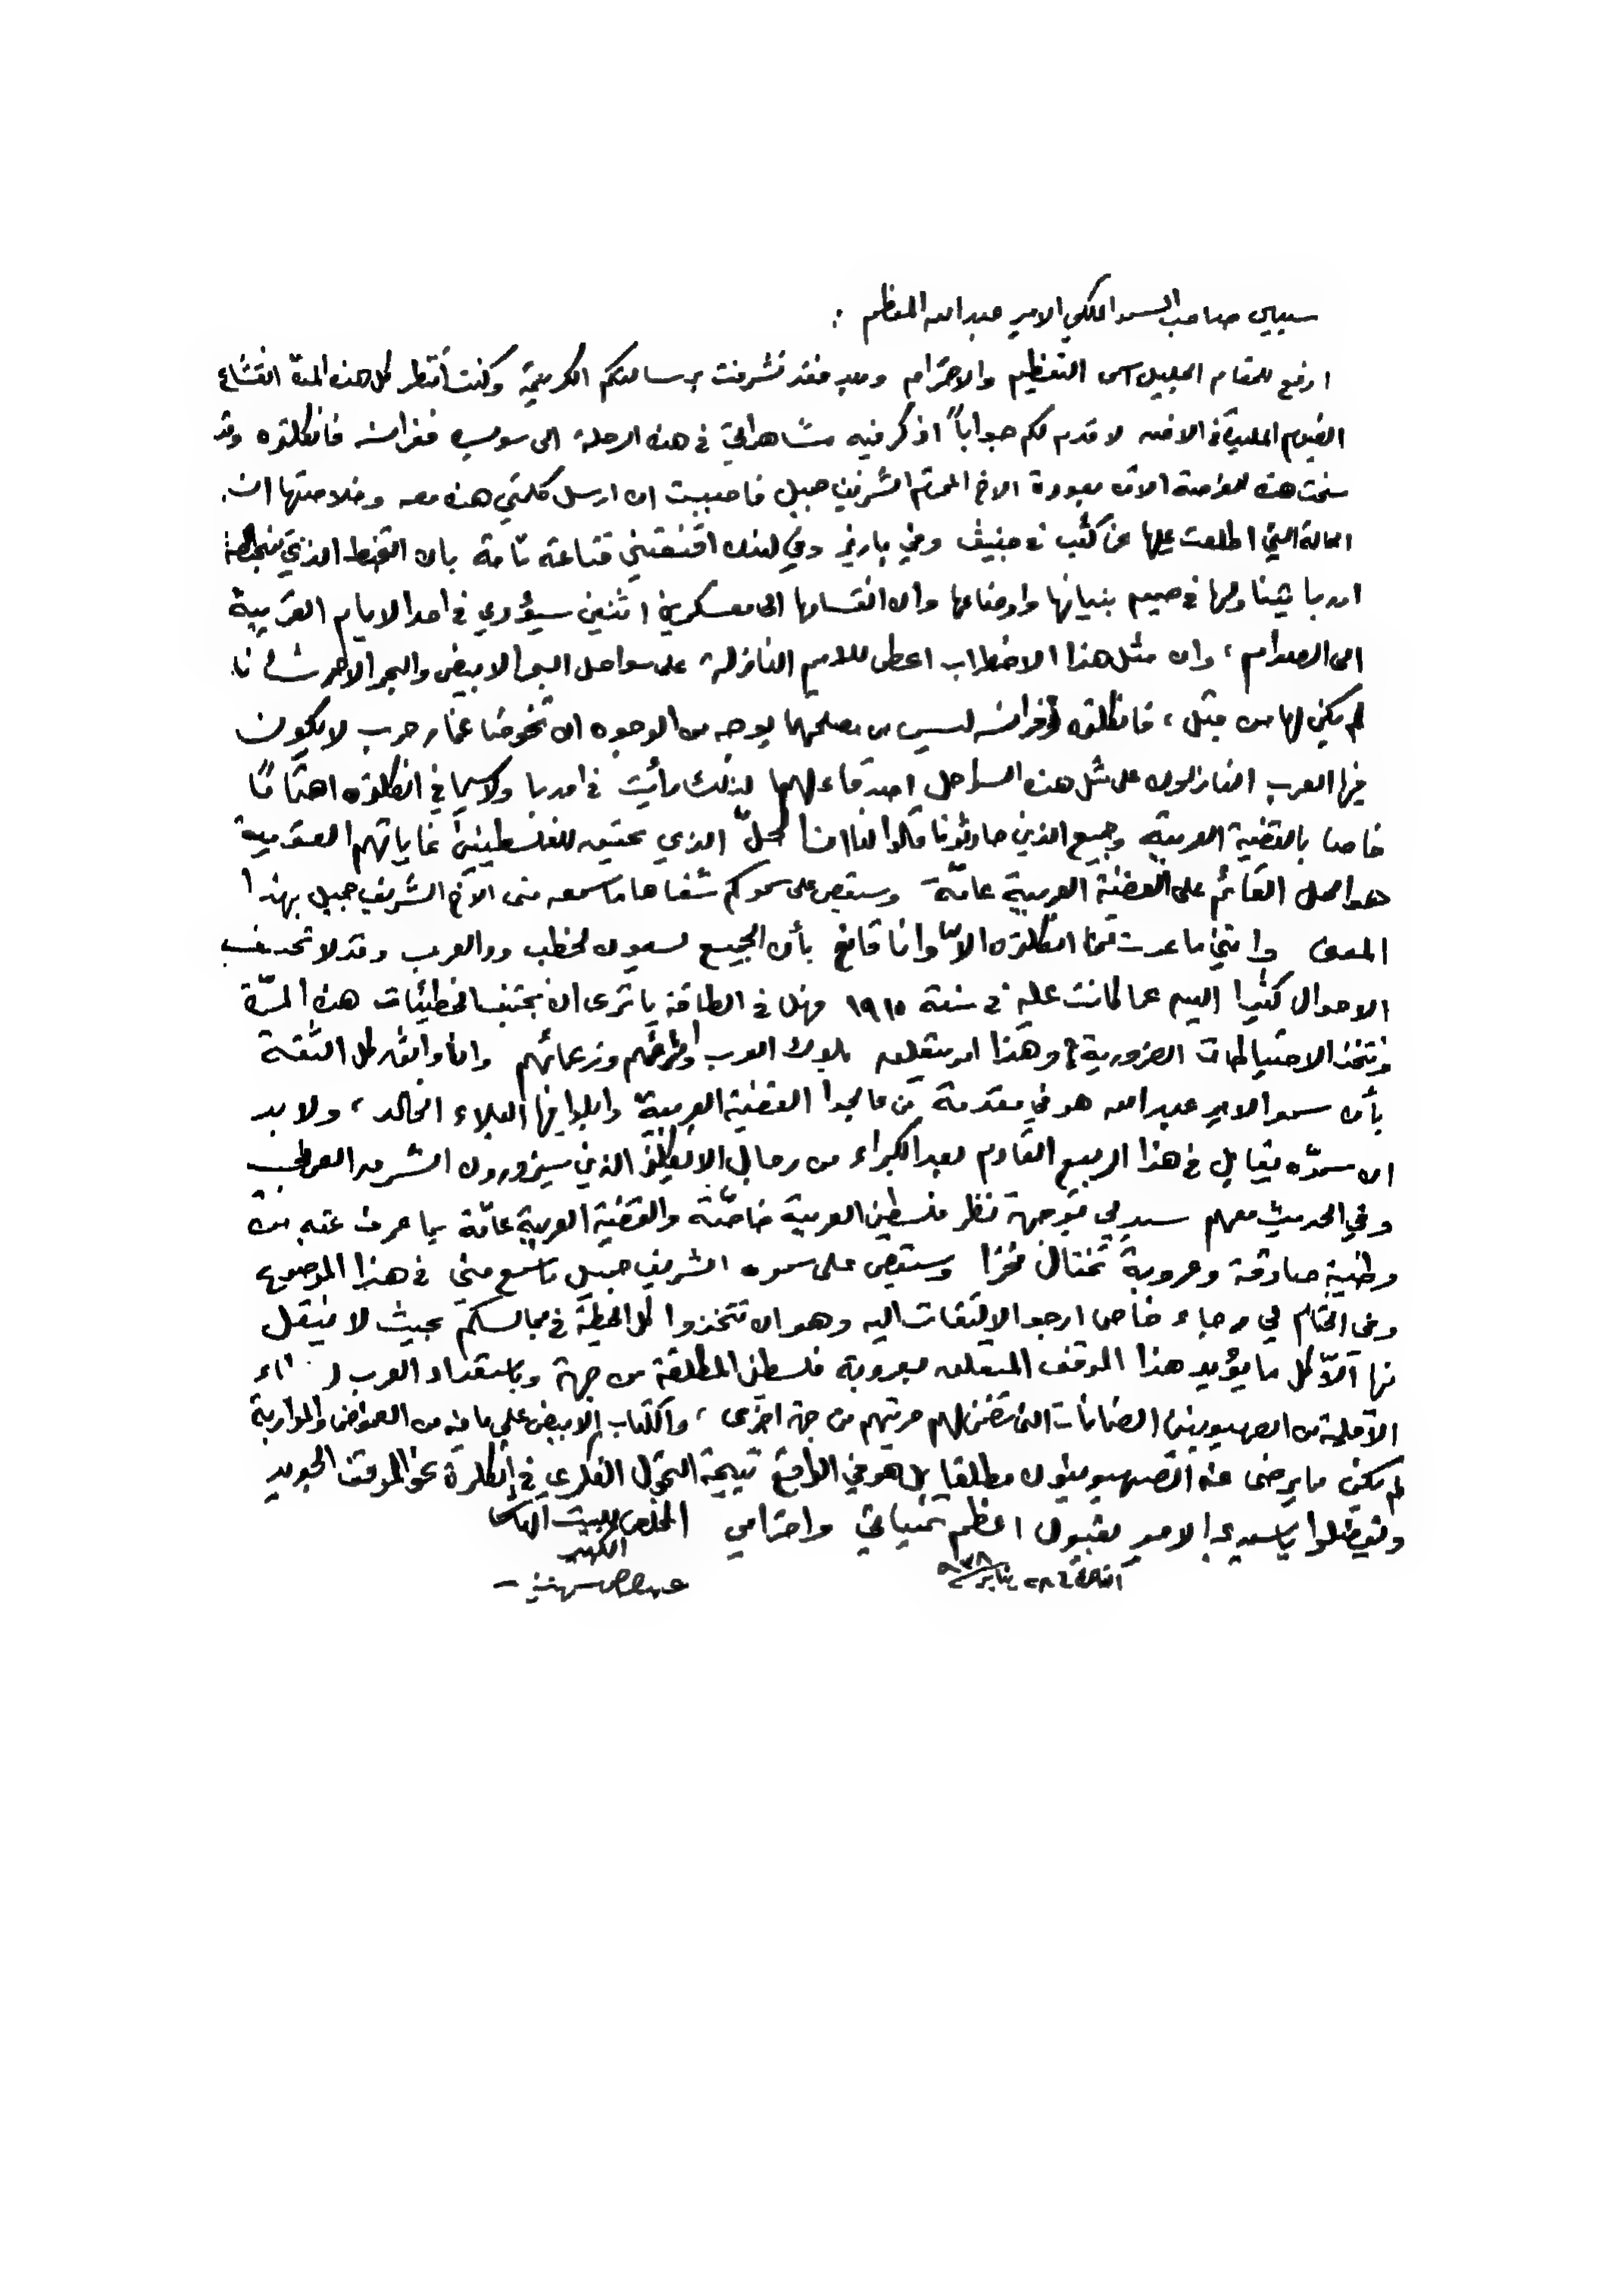 سيدي صاحب السمو الملكي الامير عبد الله المعظم :
ارفع للمقام الجليل اسمى التعظيم والاحترام وبعد فقد تشرفت برسالتكم الكريمة وكنت أنتظر كل هذه المدة انقشاع
الغيوم المتلبدة في الافق لاقدم لكم جواباً اذكر فيه مشاهداتي في هذه الرحلة الى سويسره ففرانسه فانكلتره وقد
سنحت هذه الفرصة الآن بعودة الاخ المحترم الشريف جميل فاحببت ان ارسل كلمتي هذه معه وخلاصتها ان
الحالة التي اطلعت عليها عن كثب في جنيف وفي باريز وفي لندن اقنعتني قناعة تامة بان التخبط الذي تتخبطه
اوربا يتناولها في صميم بنيانها واوضاعها وان انقسامها الى معسكرين اثنين سيؤدي في احد الايام القريبة
الى الصدام ، وان مثل هذا الاضطراب اعطى للامم النازلة على سواحل البحر الابيض والبحر الاحمر شأنا
لم يكن لها من قبل ، فانكلتره وفرانسه ليس من مصلحتهما بوجه من الوجوه ان تخوضا غمار حرب لا يكون
فيها العرب النازلون على مثل هذه السواحل اصدقاء لهما لذلك رأيت في اوربا ولا سيما في انكلتره اهتماماً
خاصا بالقضية العربية وجميع الذين حادثونا قالوا لنا ان الحلّ الذي يحقق للفلسطينيين غاياتهم القومية
هو الحل القائم على القضية العربية عامّة وسيقص على سموكم شفاها ما سمعه منى الأخ الشريف جميل بهذا
المعنى وانني ما عدت من انكلتره الّا وانا قانع بأن الجميع يسعون لخطب ود العرب وقد لا تختلف
الاحوال كثيرا اليوم عما كانت عليه في سنة ١٩١٥ فهل في الطاقة يا ترى ان نجتنب الخطيئات هذه المرّة
ونتخذ الاحتياطات الضرورية ؟ وهذا امر يتعلق بملوك العرب وامرائهم وزعمائهم وانا واثق كل الثقة
بأن سمو الامير عبد الله هو في مقدمة من عالجوا القضية العربية وابلوا فيها البلاء الخالد ، ولا بد
ان سموّه يقابل في هذا الربيع القادم بعد الكبراء من رجال الانكليز الذين سيزورون الشرق العربي
وفي الحديث معهم سيدلي بوجهة نظر فلسطين العربية خاصّة والقضية العربية عامّة بما عرف عنه من
وطنية صادقة وعروبة تختال فخرا وسيقص على سموه الشريف جميل ما سمع مني في هذا الموضوع
وفي الختام لي رجاء خاص ارجو الالتفات اليه وهو ان تتخذوا كل الحيطة في مجالسكم بحيث لا ينقل
عنها الّا كل ما يؤيد هذا الموقف المتعلق بعروبة فلسطين المطلقة من جهة وباستعداد العرب
الاقلية من الصهيونيين الضمانات التي تضمن لهم حريتهم من جهة اخرى ، والكتاب الابيض على ما فيه من الغموض والمواربة
لم يكن ما يرضى عنه الصهيونيون مطلقا بل هو في الواقع نتيجة التحول الفكري في إنكلترة نحو الموقف الجديد
وتفضلوا يا سيدي الامير بقبول اعظم تمنياتي واحترامي المخلص للبيت الهاشمي
الكريم
القاهرة ٢٨ يناير ٩٣٨
عبد الرحمن شهبندر